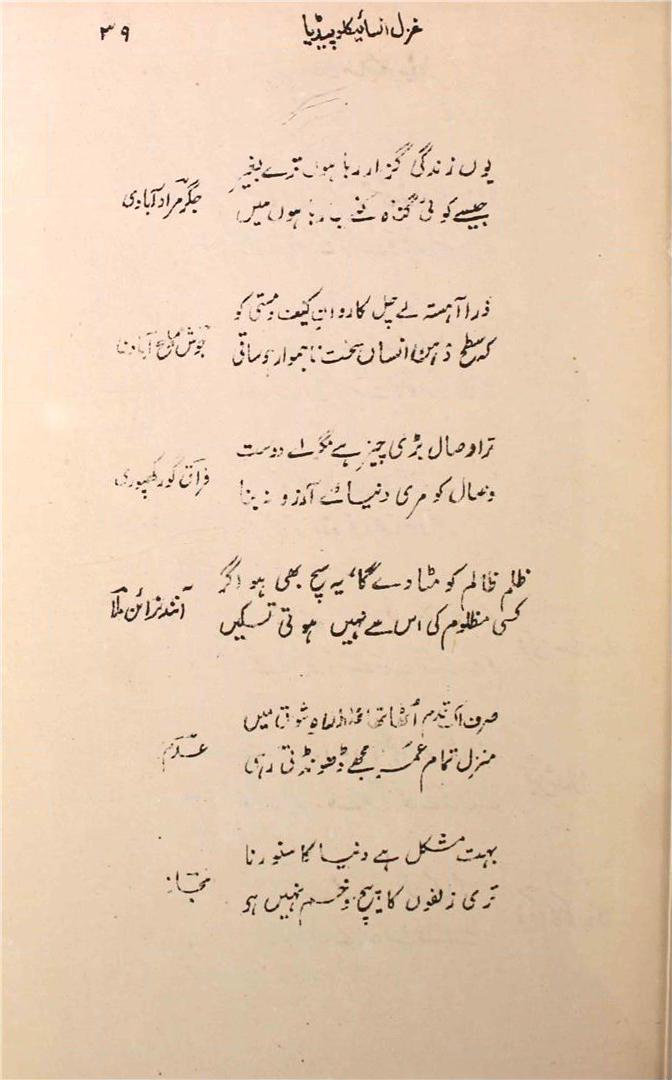 غزل انسائیکلوپیڈیا
۳۹
یوں زندگی گزار رہا ہوں ترے بغیر
جیسے کوئی گناہ کئے جا رہا ہوں میں
جگر مرادآبادی
ذرا آہستہ لے چل کاروانِ کیف و مستی کو
کہ سطح ذہن انساں سخت ناہموار ہے ساقی
جوش ملیح آبادی
ترا وصال بڑی چیز ہے مگر اے دوست
وصال کو مری دنیائے آرزو نہ بنا
فراق گورکھپوری
ظلم ظالم کو مٹا دے گا، یہ سچ بھی ہو اگر
کسی مظلوم کی اس سے نہیں ہوتی تسکیں
آنند نرائن ملا
صرف اک قدم اٹھا تھا غلط راہِ شوق میں
منزل تمام عمر مجھے ڈھونڈتی رہی
عدم
بہت مشکل ہے دنیا کا سنورنا
تری زلفوں کا پیچ و خم نہیں ہے
مجاز